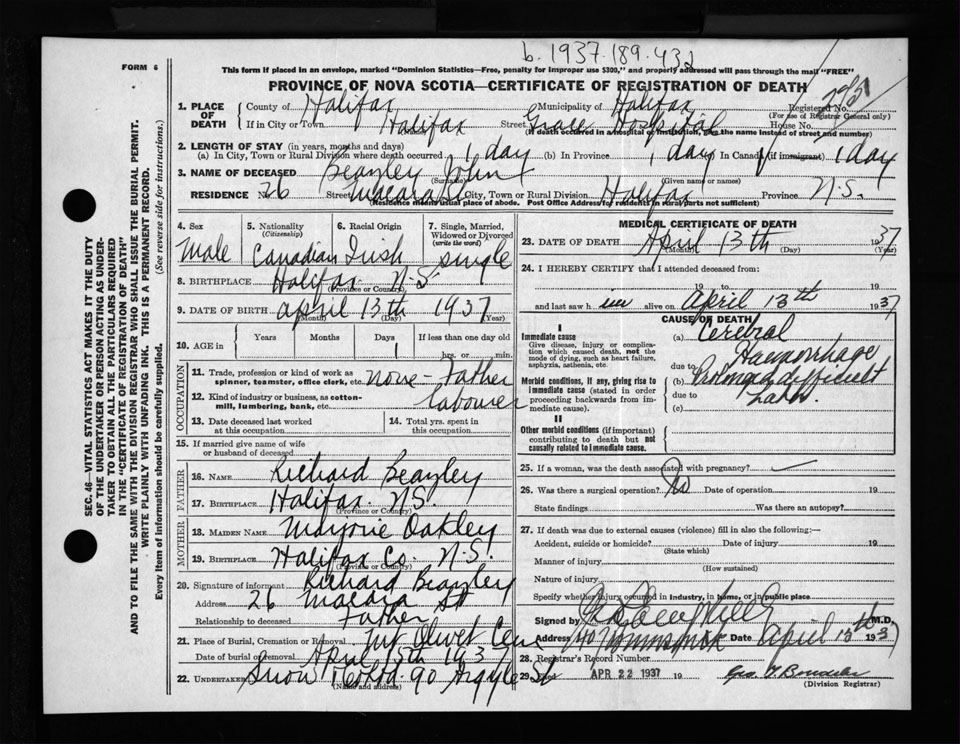 b. 1937.189.432
FORM 6
This form if placed in an envelope, marked "Dominion Statistics—Free, penalty for improper use $300," and properly addressed will pass through the mail "FREE"
PROVINCE OF NOVA SCOTIA—CERTIFICATE OF REGISTRATION OF DEATH
1. PLACE OF DEATH
County of Halifax Municipality of Halifax Registered No.
(For use of Registrar General only)
If in City or Town Halifax Street Grace Hospital House No.
(If death occurred in a hospital or institution, give the name instead of street and number)
2. LENGTH OF STAY (in years, months and days)
(a) In City, Town or Rural Division where death occurred 1 day (b) In Province 1 day (c) In Canada (if immigrant) 1 day
3. NAME OF DECEASED Beazley John
(Surname) (Given name or names)
RESIDENCE No. 26 Street Macara St City, Town or Rural Division Halifax Province N.S.
(Residence means usual place of abode. Post Office Address for residents in rural parts not sufficient)
4. Sex Male
5. Nationality (Citizenship) Canadian
6. Racial Origin Irish
7. Single, Married, Widowed or Divorced (write the word) Single
8. BIRTHPLACE Halifax N.S.
(Province or Country)
9. DATE OF BIRTH April 13th 1937
(Month) (Day) (Year)
10. AGE in Years Months Days 1 If less than one day old
hrs. or min.
OCCUPATION
11. Trade, profession or kind of work as spinner, teamster, office clerk, etc. none - Father
12. Kind of industry or business, as cotton-mill, lumbering, bank, etc. labourer
13. Date deceased last worked at this occupation
14. Total yrs. spent in this occupation
15. If married give name of wife or husband of deceased
FATHER
16. NAME Richard Beazley
17. BIRTHPLACE Halifax N.S.
(Province or Country)
MOTHER
18. MAIDEN NAME Marjorie Oakley
19. BIRTHPLACE Halifax Co. N.S.
(Province or Country)
20. Signature of informant Richard Beazley
Address 26 Macara St
Relationship to deceased Father
21. Place of Burial, Cremation or Removal Mt Olivet Cem
Date of burial or removal April 15th 193
22. UNDERTAKER Snow 90 Argyle St
(Name and address)
MEDICAL CERTIFICATE OF DEATH
23. DATE OF DEATH April 13th 1937
(Month) (Day)
24. I HEREBY CERTIFY that I attended deceased from:
19 to 19
and last saw h im alive on April 13th 1937
CAUSE OF DEATH
I
Immediate cause
Give disease, injury or complication which caused death, not the mode of dying, such as heart failure, asphyxia, asthenia, etc.
(a) Cerebral Haemorrhage
due to
Morbid conditions, if any, giving rise to immediate cause (stated in order proceeding backwards from immediate cause).
(b) Prolonged difficult labor
due to
(c)
II
Other morbid conditions (if important) contributing to death but not causally related to immediate cause.
25. If a woman, was the death associated with pregnancy?
26. Was there a surgical operation? No Date of operation 19
State findings Was there an autopsy?
27. If death was due to external causes (violence) fill in also the following:—
Accident, suicide or homicide? Date of injury 19
(State which)
Manner of injury
(How sustained)
Nature of injury
Specify whether injury occurred in industry, in home, or in public place
Signed by M.D.
Address Date April 13th 1937
28. Registrar's Record Number
29. APR 22 1937 19
(Division Registrar)
SEC. 46—VITAL STATISTICS ACT MAKES IT THE DUTY
OF THE UNDERTAKER OR PERSON ACTING AS UNDER-
TAKER TO OBTAIN ALL THE PARTICULARS REQUIRED
IN THE "CERTIFICATE OF REGISTRATION OF DEATH"
AND TO FILE THE SAME WITH THE DIVISION REGISTRAR WHO SHALL ISSUE THE BURIAL PERMIT.
WRITE PLAINLY WITH UNFADING INK. THIS IS A PERMANENT RECORD.
Every item of information should be carefully supplied. (See reverse side for instructions.)